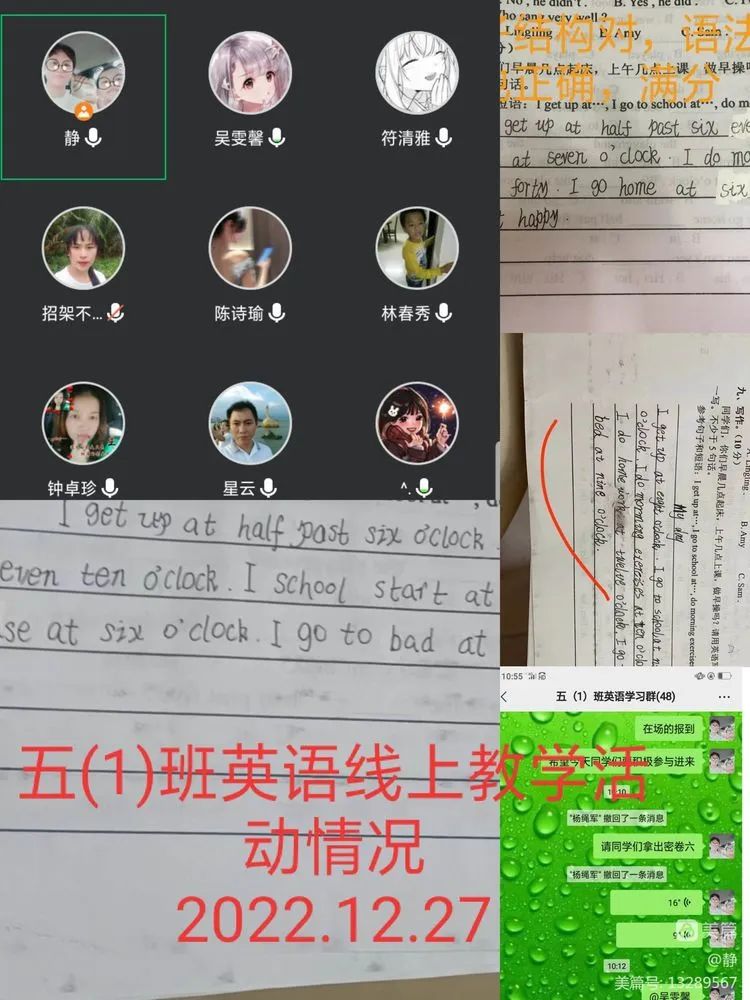 静
吴雯馨
符清雅
招架不...
陈诗瑜
林春秀
钟卓珍
星云
^.
No, he didn't. B. Yes, he did.
Who sang very well?
Lingling B. Amy C. Sam.
结构对，语法
正确，满分
们早晨几点起床，上午几点上课，做早操
话。
短语：I get up at…, I go to school at…, do m
get up at half past six eve
at seven o'clock. I do mo
forty. I go home at six
t happy.
A. Lingling. B. Amy C. Sam.
九、写作。(10分)
同学们，你们早晨几点起床，上午几点上课，做早操吗？请用英语
一写。不少于5句话。
参考句子和短语：I get up at…, I go to school at…, do morning exercises
My day
I get up at eight o'clock. I go to school at n
o'clock. I do morning exercises at ten o'clo
I do home work at twelve o'clock. I go
bed at nine o'clock.
I get up at half past six o'clock.
even ten o'clock. I school start at
se at six o'clock. I go to bad at
五(1)班英语线上教学活
动情况
2022.12.27
10:55
五（1）班英语学习群(48)
在场的报到
希望今天同学们要积极参与进来
10:10
"杨绳军" 撤回了一条消息
请同学们拿出密卷六
"杨绳军" 撤回了一条消息
16"
9"
10:12
@吴雯馨
美篇
@静
美篇号: 13289567